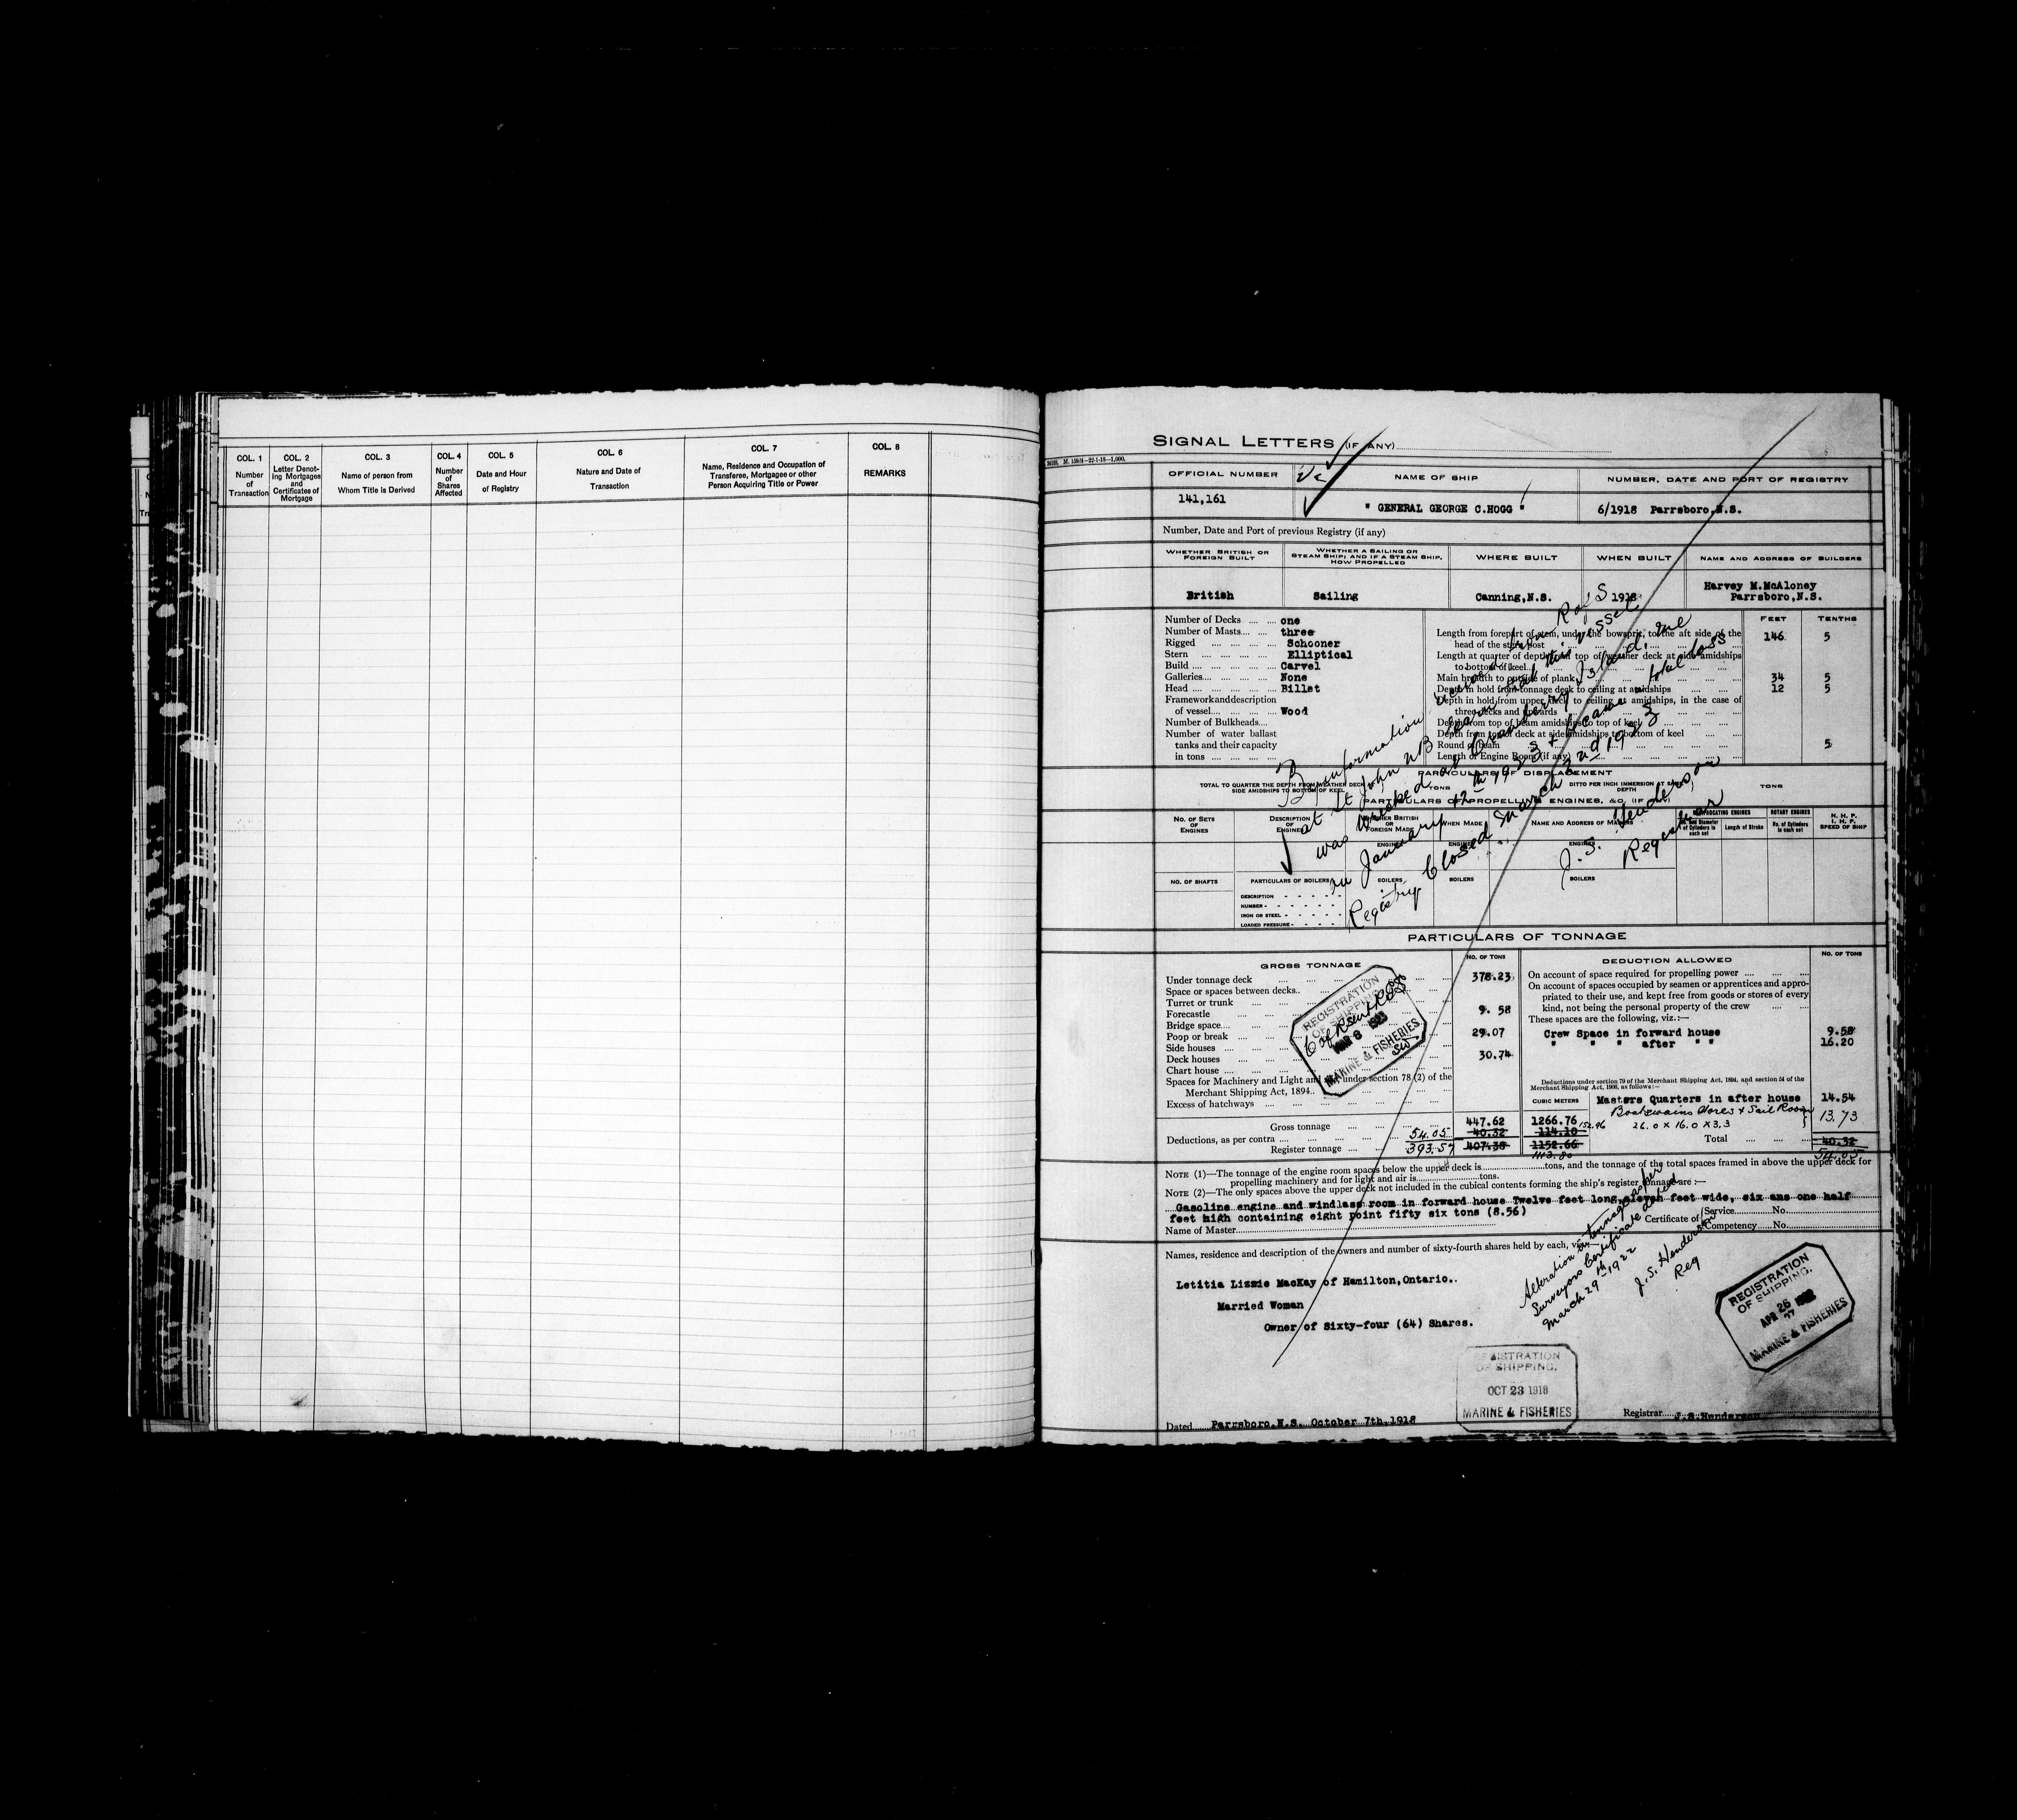 COL. 1
Number
of
Transaction
COL. 2
Letter Denot-
ing Mortgages
and
Certificates of
Mortgage
COL. 3
Name of person from
Whom Title is Derived
COL. 4
Number
of
Shares
Affected
COL. 5
Date and Hour
of Registry
COL. 6
Nature and Date of
Transaction
COL. 7
Name, Residence and Occupation of
Transferee, Mortgagee or other
Person Acquiring Title or Power
COL. 8
REMARKS
SIGNAL LETTERS (IF ANY)
OFFICIAL NUMBER
NAME OF SHIP
NUMBER, DATE AND PORT OF REGISTRY
141,161
" GENERAL GEORGE C.HOGG "
6/1918 Parrsboro,N.S.
Number, Date and Port of previous Registry (if any)
WHETHER BRITISH OR
FOREIGN BUILT
WHETHER A SAILING OR
STEAM SHIP; AND IF A STEAM SHIP,
HOW PROPELLED
WHERE BUILT
WHEN BUILT
NAME AND ADDRESS OF BUILDERS
British
Sailing
Canning,N.S.
1918
Harvey M.McAloney
Parrsboro,N.S.
FEET TENTHS
Number of Decks one
Number of Masts three
Rigged Schooner
Stern Elliptical
Build Carvel
Galleries None
Head Billet
Framework and description
of vessel Wood
Number of Bulkheads
Number of water ballast
tanks and their capacity
in tons
Length from forepart of stem, under the bowsprit, to the aft side of the
head of the stern post 146 5
Length at quarter of depth from top of weather deck at side amidships
to bottom of keel
Main breadth to outside of plank 34 5
Depth in hold from tonnage deck to ceiling at amidships 12 5
Depth in hold from upper deck to ceiling at amidships, in the case of
three decks and upwards
Depth from top of beam amidships to top of keel
Depth from top of deck at side amidships to bottom of keel
Round of beam 5
Length of Engine Room (if any)
By information received from Rof S
at St John NB learn that this vessel
was wrecked at Cranberry Island, Me
on January 12th 1923 & became total loss
Registry Closed March 2nd 1923
J.S. Henderson
Registrar
PARTICULARS OF DISPLACEMENT
TOTAL TO QUARTER THE DEPTH FROM WEATHER DECK AT
SIDE AMIDSHIPS TO BOTTOM OF KEEL
TONS
DITTO PER INCH IMMERSION AT SAME
DEPTH
TONS
PARTICULARS OF PROPELLING ENGINES, &C. (IF ANY)
NO. OF SETS
OF
ENGINES
DESCRIPTION
OF
ENGINES
WHETHER BRITISH
OR
FOREIGN MADE
WHEN MADE
NAME AND ADDRESS OF MAKERS
RECIPROCATING ENGINES
No. and Diameter
of Cylinders in
each set
Length of Stroke
ROTARY ENGINES
No. of Cylinders
in each set
N. H. P.
I. H. P.
SPEED OF SHIP
ENGINES
ENGINES
ENGINES
NO. OF SHAFTS
PARTICULARS OF BOILERS
BOILERS
BOILERS
BOILERS
DESCRIPTION
NUMBER
IRON OR STEEL
LOADED PRESSURE
PARTICULARS OF TONNAGE
GROSS TONNAGE
NO. OF TONS
DEDUCTION ALLOWED
NO. OF TONS
Under tonnage deck 378.23
Space or spaces between decks
Turret or trunk
Forecastle 9. 58
Bridge space
Poop or break 29.07
Side houses
Deck houses 30.74
Chart house
Spaces for Machinery and Light and air under section 78 (2) of the
Merchant Shipping Act, 1894
Excess of hatchways
REGISTRATION
OF SHIPPING
MAR 8 1923
MARINE & FISHERIES
On account of space required for propelling power
On account of spaces occupied by seamen or apprentices and appro-
priated to their use, and kept free from goods or stores of every
kind, not being the personal property of the crew
These spaces are the following, viz.:—
Crew Space in forward house 9.58
" " " after " " 16.20
Deductions under section 79 of the Merchant Shipping Act, 1894, and section 54 of the
Merchant Shipping Act, 1906, as follows:—
CUBIC METERS
Masters Quarters in after house 14.54
Boatswains Stores & Sail Room
26.0 x 16.0 x 3.3 13.73
Gross tonnage 447.62 1266.76
Deductions, as per contra 54.05 40.32 114.10 152.96
Register tonnage 393.57 407.30 1152.66
1113.80
Total 40.32
54.05
NOTE (1)—The tonnage of the engine room spaces below the upper deck is tons, and the tonnage of the total spaces framed in above the upper deck for
propelling machinery and for light and air is tons.
NOTE (2)—The only spaces above the upper deck not included in the cubical contents forming the ship's register tonnage are :—
Gasoline engine and windlass room in forward house Twelve feet long,eleven feet wide, six ans one half
feet high containing eight point fifty six tons (8.56)
Name of Master
Certificate of
Service No.
Competency No.
Names, residence and description of the owners and number of sixty-fourth shares held by each, viz.
Letitia Lizzie MacKay of Hamilton,Ontario..
Married Woman
Owner of Sixty-four (64) Shares.
Alteration in tonnage as per
Surveyors Certificate dated
March 29th 1922
J.S. Henderson
Reg
REGISTRATION
OF SHIPPING.
APR 26
MARINE & FISHERIES
REGISTRATION
OF SHIPPING.
OCT 23 1918
MARINE & FISHERIES
Dated Parrsboro,N.S. October 7th,1918
Registrar J.S.Henderson